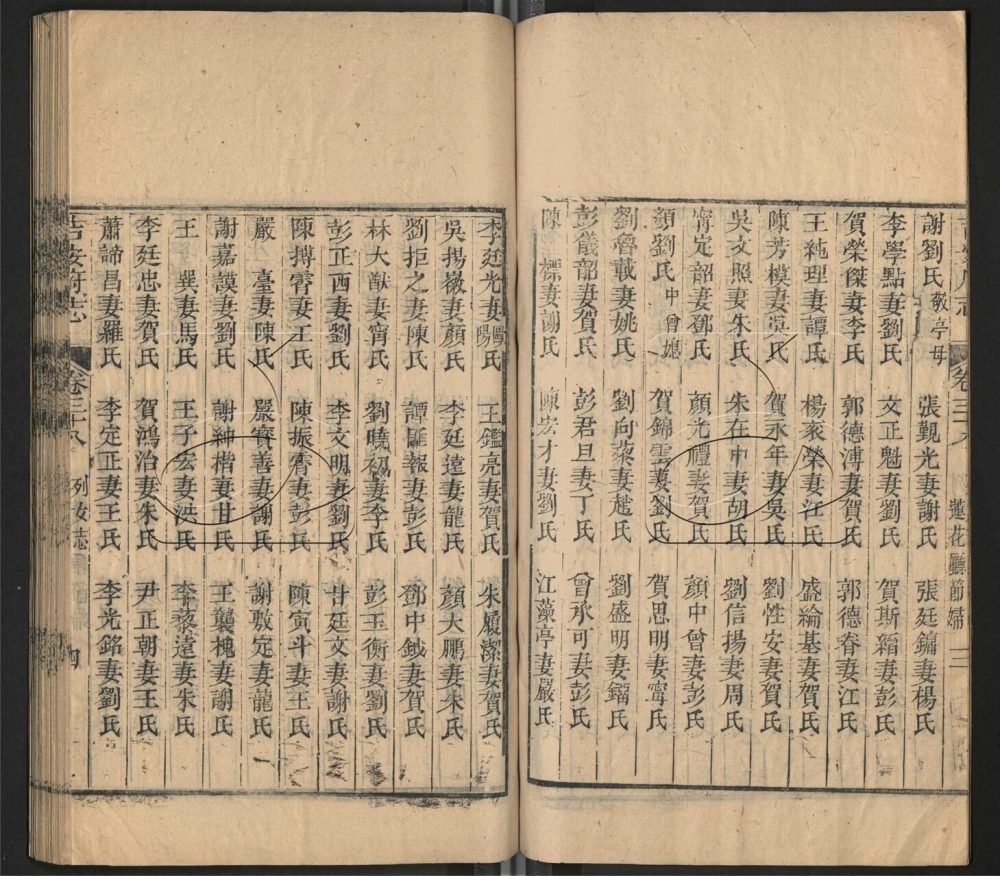 吉安府志 卷三十八 蓮花廳節婦 三
謝劉氏敬亭母 張觀光妻謝氏 張廷鏞妻楊氏
李學點妻劉氏 文正魁妻劉氏 賀斯縉妻彭氏
賀榮傑妻李氏 郭德溥妻賀氏 郭德眷妻江氏
王純理妻譚氏 楊袞榮妻江氏 盛綸基妻賀氏
陳芳模妻吳氏 賀永年妻吳氏 劉性安妻賀氏
吳文照妻朱氏 朱在中妻胡氏 劉信揚妻周氏
甯定韶妻鄧氏 顏光禮妻賀氏 顏中曾妻彭氏
顏劉氏中曾媳 賀錦雲妻劉氏 賀思明妻甯氏
劉魯載妻姚氏 劉向藜妻 氏 劉盛明妻鎦氏
彭儀韶妻賀氏 彭君旦妻丁氏 曾承可妻彭氏
陳 標妻謝氏 陳宏才妻劉氏 江藻亭妻嚴氏
李廷光妻歐陽氏 王鑑亮妻賀氏 朱履潔妻賀氏
吳揚嶽妻顏氏 李廷遠妻龍氏 顏大鵬妻朱氏
劉拒之妻陳氏 譚匪報妻彭氏 鄧中鉞妻賀氏
林大猷妻甯氏 劉曉初妻李氏 彭玉衡妻劉氏
彭正西妻劉氏 李文明妻劉氏 甘廷文妻謝氏
陳搏霄妻王氏 陳振霄妻彭氏 陳寅斗妻王氏
嚴 臺妻陳氏 嚴寶善妻謝氏 謝敷定妻龍氏
謝嘉謨妻劉氏 謝紳楷妻甘氏 王襲槐妻謝氏
王 巽妻馬氏 王子宏妻洪氏 李藜遠妻朱氏
李廷忠妻賀氏 賀鴻治妻朱氏 尹正朝妻王氏
蕭諦昌妻羅氏 李定正妻王氏 李光銘妻劉氏
吉安府志 卷三十八 列女志 四